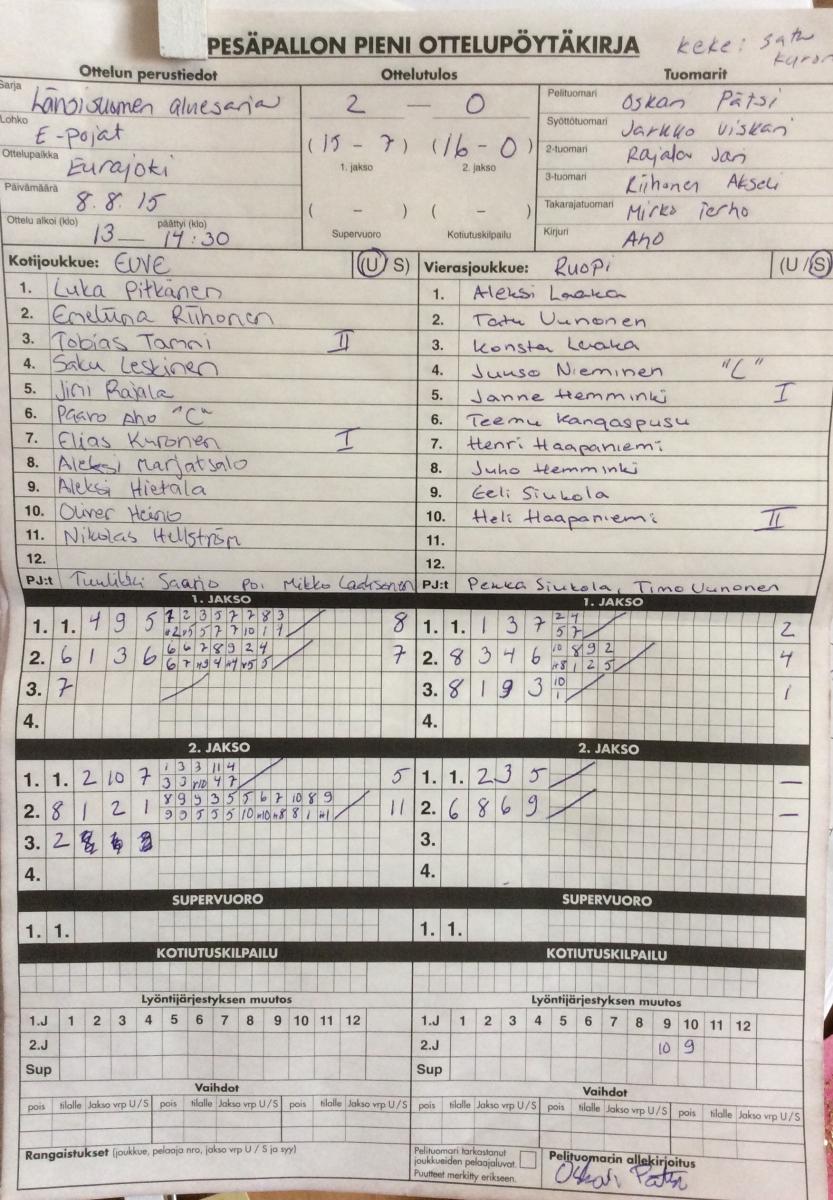 PESÄPALLON PIENI OTTELUPÖYTÄKIRJA
keke: satu
Ottelun perustiedot
Ottelutulos
Tuomarit
Sarja
Länsisuomen aluesarja
Lohko
E-pojat
Ottelupaikka
Eurajoki
Päivämäärä
8.8.15
Ottelu alkoi (klo) päättyi (klo)
13 — 14:30
2 — 0
(15 - 7) (16 - 0)
1. jakso 2. jakso
( - ) ( - )
Supervuoro Kotiutuskilpailu
Pelituomari Oskari Pätsi
Syöttötuomari Jarkko Viskari
2-tuomari Rajala Jari
3-tuomari Riihonen Akseli
Takarajatuomari Mirko Terho
Kirjuri Aho
Kotijoukkue: EUVE (U/S)
1. Luka Pitkänen
2. Emeliina Riihonen
3. Tobias Tamni II
4. Saku Leskinen
5. Jimi Rajala
6. Paavo Aho "C"
7. Elias Kuronen I
8. Aleksi Marjatsalo
9. Aleksi Hietala
10. Oliver Heino
11. Nikolas Hellström
12.
PJ:t Tuulikki Saario po. Mikko Laaksonen
Vierasjoukkue: RuoPi (U/S)
1. Aleksi Laaka
2. Tatu Uunonen
3. Konsta Laaka
4. Juuso Nieminen "C"
5. Janne Hemminki I
6. Teemu Kangaspusu
7. Henri Haapaniemi
8. Juho Hemminki
9. Eeli Siukola
10. Heli Haapaniemi II
11.
12.
PJ:t Pekka Siukola, Timo Uunonen
1. JAKSO
1. 1. 4 9 5 7 2 3 5 7 7 8 3 8
2. 6 1 3 6 6 6 7 8 9 2 4 7
6 7 5 5
3. 7
4.
1. JAKSO
1. 1. 1 3 7 2 4 2
5 7
2. 8 3 4 6 10 8 9 2 4
1 2 5
3. 8 1 9 3 10 1
1
4.
2. JAKSO
1. 1. 2 10 7 1 3 3 11 4 5
3 3 4 7
2. 8 1 2 1 8 9 9 3 5 5 6 7 10 8 9 11
3. 2
4.
2. JAKSO
1. 1. 2 3 5 —
2. 6 8 6 9 —
3.
4.
SUPERVUORO
1. 1.
SUPERVUORO
1. 1.
KOTIUTUSKILPAILU
KOTIUTUSKILPAILU
Lyöntijärjestyksen muutos
1.J 1 2 3 4 5 6 7 8 9 10 11 12
2.J
Sup
Lyöntijärjestyksen muutos
1.J 1 2 3 4 5 6 7 8 9 10 11 12
2.J 10 9
Sup
Vaihdot
pois tilalle Jakso vrp U/S pois tilalle Jakso vrp U/S pois tilalle Jakso vrp U/S
Vaihdot
pois tilalle Jakso vrp U/S pois tilalle Jakso vrp U/S pois tilalle Jakso vrp U/S
Rangaistukset (joukkue, pelaaja nro, jakso vrp U / S ja syy)
Pelituomari tarkastanut
joukkueiden pelaajaluvat.
Puutteet merkitty erikseen.
Pelituomarin allekirjoitus
Oskari Pätsi